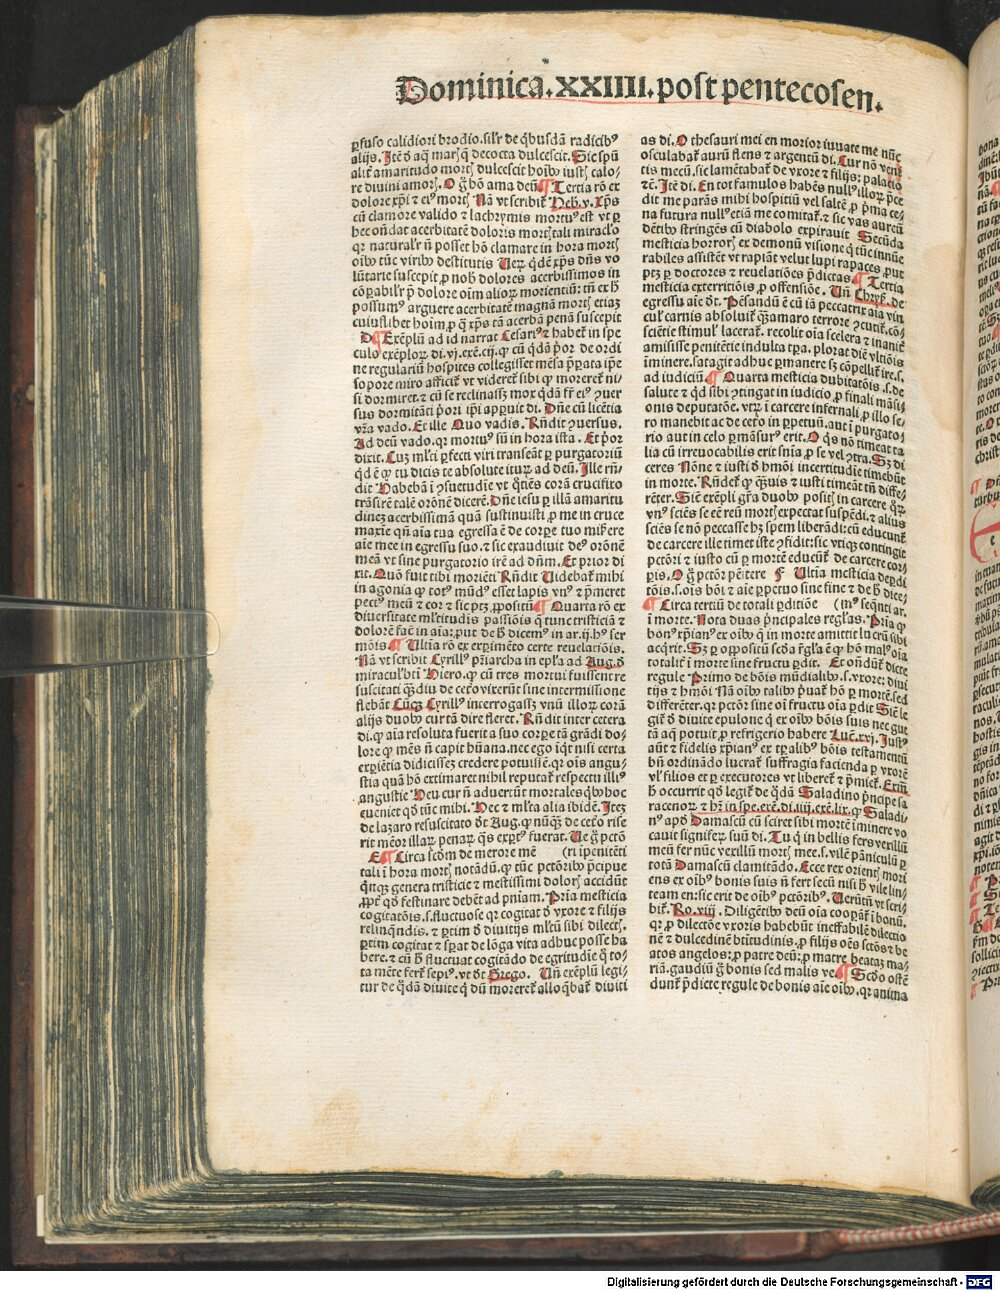 Dominica.XXIIII.post pentecosen.
ꝑfuso calidiori brodio.sil'r de q̇busdā radicibꝰ
alijs. Itē ð aq̄ marħ q̄ decocta dulcescit. Sic spū
alit̄ amaritudo mortꝭ dulcescit hoib⁹ iustꝭ calo/
re diuini amorꝭ. O g̊ hō ama deū ¶ Tertia rō ex
dolore xp̄i ⁊ eiꝰ mortꝭ Nā vt scribit̄ Heb.v. Xp̄s
cū clamore valido ⁊ lachrymis mortuꝰ est vt ꝑ
hec oñdat acerbitatē doloris mortꝭ tali miracl'o
qꝛ natural'r nō posset hō clamare in hora mortꝭ
oib⁹ tūc virib⁹ destitutis Ueꝝ qdē xp̄s dn̄s vo
lūtarie suscepit ꝓ nob̄ dolores acerbissimos in
cōꝑabil'r p̄ dolore oīm alioꝝ morientiū: tn̄ ex h̄
possumꝰ arguere acerbitatē magnā mortꝭ etiaꝫ
cuiuslibet hoim, ꝓ q̄ xp̄s tā acerbā penā suscepit
D ¶ Exēplū ad id narrat Cesariꝰ ⁊ habet̄ in spe
culo exēploꝝ di.vj.exē.cij. ꝙ cū q̇dā p̄or de ordi
ne regulariū hospites collegisset mēsa p̄ꝑata ip̄e
sopore miro afficit̄ vt videret̄ sibi ꝙ moreret̄ ni/
si dormiret. ⁊ cū se reclinassꝫ mox q̇dā fr̄ eiꝰ ꝯuer
sus dormitāti p̄ori ip̄i apꝑuit di. Dn̄e cū licētia
vr̄a vado. Et ille Quo vadis. Rn̄dit ꝯuersus.
Ad deū vado. qꝛ mortuꝰ sū in hora ista. Et p̄or
dixit. Cuꝫ ml'ti ꝑfecti viri transeāt ꝑ purgatoriū
qd ē ꝙ tu dicis te absolute ituꝝ ad deū. Ille rn̄/
dit Habebā ī ꝯsuetudīe vt q̄tiēs corā crucifixo
trāsirē talē orōnē dicerē. Dn̄e iesu ꝑ illā amaritu
dineꝫ acerbissimā quā sustinuisti ꝓ me in cruce
maxīe qn̄ aīa tua egressa ē de corꝑe tuo miserere
aīe mee in egressu suo. ⁊ sic exaudiuit deꝰ orōnē
meā vt sine purgatorio irē ad dn̄m. Et prior di
xit. Quō fuit tibi moriēti Rn̄dit Uidebat̄ mihi
in agonia ꝙ totꝰ mūdꝰ esset lapis vnꝰ ⁊ p̄meret
pectꝰ meū ⁊ cor ⁊ sic ptꝫ ꝓpositū ¶ Quarta rō ex
diuersitate ml'titudis passiōis q̄ tunc tristiciā ⁊
dolorē faciē in aīa: ꝓut de h̄ dicemꝰ in ar.ij.hꝰ ser
mōis ¶ Ultīa rō ex exꝑimēto certe reuelatiōis.
Nā vt scribit Cyrillꝰ p̄iarcha in epl'a ad Aug. ð
miracul' bti Hiero. ꝙ cū tres mortui fuissent re
suscitati q̄diu de cet'o vixerūt sine intermissione
flebāt Cūcꝫ Cyrillꝰ interrogassꝫ vnū illoꝝ corā
alijs duob⁹ cur tā dire fleret. Rn̄dit inter cetera
di. ꝙ aīa resoluta fuerit a suo corꝑe tā grādi do/
lore ꝙ mēs nō capit hūana. nec ego iq̇t nisi certa
exꝑiētia didicisseꝫ credere potuissē. qꝛ oīs angu/
stia quā hō extimaret nihil reputat̄ respectu illiꝰ
angustie Heu cur nō aduertūt mortales qb⁹ hoc
eueniet qd tūc mihi. Hec ⁊ ml'ta alia ibidē. Iteꝫ
de lazaro resuscitato dt̄ Aug. ꝙ nūq̄ de cet'o rise
rit mēor illaꝝ penaꝝ q̄s exꝑtꝰ fuerat. Ue g̊ pctō
E ¶ Circa scd̄m de merore mē (ri ipeniteti
tali ī hora mortꝭ notādū. ꝙ tūc pctōrib⁹ p̄cipue
q̄nqꝫ genera tristicie ⁊ mestissimi dolorꝭ accidūt
ꝓpt' qd festinare debet ad pn̄iam. Pria mesticia
cogitatōis.s.fluctuose qꝛ cogitat ð vxore ⁊ filijs
relinq̄ndis. ⁊ ꝑtim ð diuitijs ml'tū sibi dilectꝭ.
ꝑtim cogitat ⁊ sperat de lōga vita adhuc posse ha
bere. ⁊ cū h̄ fluctuat cogitādo de egritudīe q̄ to/
ta mēte fert̄ sepiꝰ. vt dt̄ Grego. Uñ exēplū legi/
tur de q̇dā diuite q̇ dū moreret̄ alloq̄bat̄ diuiti
as di. O thesauri mei en morior iuuate me nūc
osculabat̄ aurū flens ⁊ argentū di. Cur nō venit̄
tis mecū. sic lamētabat̄ de vxore ⁊ filijs: palatio
⁊c̄. Itē di. En tot famulos habēs nullꝰ illoꝝ p̄ce
dit me parās mihi hospitiū vel saltē, ꝓ p̄ma ce/
na futura nullꝰ etiā me comitat̄. ⁊ sic vas aureū
dētib⁹ stringēs cū diabolo expirauit Secūda
mesticia horrorꝭ ex demonū visione q̇ tūc innūe
rabiles assistēt vt rapiāt velut lupi rapaces, ꝓut
ptꝫ ꝑ doctores ⁊ reuelatiōes p̄dictas ¶ Tertia
mesticia exterritiōis, ꝓ offensiōe. Uñ Chryſ. de
egressu aīe dt̄. Pēsandū ē cū iā peccatrix aīa vin
cul' carnis absoluit̄ q̄samaro terrore ꝯcutit̄. cō/
sciētie stimul' lacerat̄. recolit oīa scelera ⁊ inaniē
amisisse penitētie indulta tꝑa. plorat diē vltiōis
īminere. satagit adhuc ꝑmanere sꝫ cōpellit̄ ire.s.
ad iudiciū ¶ Quarta mesticia dubitatōis.s.de
salute ⁊ qd sibi ꝯtingat in iudicio, ꝓ finali māsi/
onis deputatōe. vtꝝ ī carcere infernali, ꝓ illo se/
ro manebit ac de cet'o in ꝑpetuū. aut ī purgato/
rio aut in celo ꝑmāsurꝰ erit. O q̇s nō timeat ta
lia cū irreuocabilis erit snīa, ꝓ se vel ꝯtra. Sꝫ di
ceres Nōne ⁊ iusti ð hmōi incertitudīe timebūt
in morte. Rn̄det̄ ꝙ q̄uis ⁊ iusti timeāt tn̄ diffe/
rēter. Siē exēpli gr̄a duob⁹ positꝭ in carcere qꝝ
vnꝰ sciēs se eē reū mortꝭ expectat suspēdi. ⁊ alius
sciēs se nō peccasse hꝫ spem liberādi: cū educunt̄
de carcere ille timet iste ꝯfidit: sic vtiqꝫ contingit
pctōri ⁊ iusto cū ꝑ mortē educūt̄ de carcere cor/
ꝑis. O g̊ pctōr pēitere F Ultīa mesticia ꝑdi
tōis.s.oīs boi ⁊ aīe ꝑpetuo sine fine ⁊ de h̄ dice/
¶ Circa tertiū de totali ꝑditiōe (mꝰ seq̄nti ar.
ī morte. Nota duas p̄ncipales regl'as. Pria ꝙ
bonꝰ xp̄ianꝰ ex oīb⁹ q̄ in morte amittit lucrū sibi
acq̇rit. Sꝫ ꝑ oppositū scd̄a regl'a ē ꝙ hō malꝰ oīa
totalit̄ ī morte sine fructu ꝑdit. Et oñdūt̄ dicte
regule Primo de bōis mūdialib⁹.s.vxore: diui
tijs ⁊ hmōi Nā oīb⁹ talib⁹ p̄uat̄ hō ꝑ mortē. sed
differēter. qꝛ pctōr sine oī fructu oīa ꝑdit Siē le
git̄ ð diuite epulone q̇ ex oīb⁹ bōis suis nec gut
tā aq̄ potuit, ꝓ refrigerio habere Luc̄.xvj. Iustꝰ
aūt ⁊ fidelis xp̄ianꝰ ex tꝑalib⁹ bōis testamentū
bn̄ ordinādo lucrat̄ suffragia facienda ꝑ vxorē
vl' filios et ꝑ executores vt liberet̄ ⁊ p̄miet̄. Exm̄
h̄ occurrit qd legit̄ de q̇dā Saladino p̄ncipe sa
racenoꝝ ⁊ hꝫ in spe.exē.di.iiij.exē.lix. ꝙ Saladi/
nꝰ apd Damascū cū sciret sibi mortē īminere vo
cauit signiferꝝ suū di. Tu q̇ in bellis fers vexillū
meū fer nūc vexillū mortꝭ mee.s.vilē pāniculū ꝑ
totā Damascū clamitādo. Ecce rex orientꝭ mori
ens ex oībꝰ bonis suis nō fert secū nisi h̄ vile lin/
team en: sic erit de oībꝰ pctōribꝰ. Uerūtn̄ vt scri/
bit̄. Ro.viij. Diligētib⁹ deū oīa cooꝑat̄ ī bonū.
qꝛ, ꝓ dilectōe vxoris habebūt ineffabilē dilectio
nē ⁊ dulcedinē btitudinis, ꝓ filijs oēs sctōs ⁊ be
atos angelos: ꝓ patre deū: ꝓ matre beataꝫ ma/
riā. gaudiū g̊ bonis sed malis ve ¶ Scd̄o oste
dunt̄ p̄dicte regule de bonis aīe oīb⁹. qꝛ anima
Digitalisierung gefördert durch die Deutsche Forschungsgemeinschaft - DFG